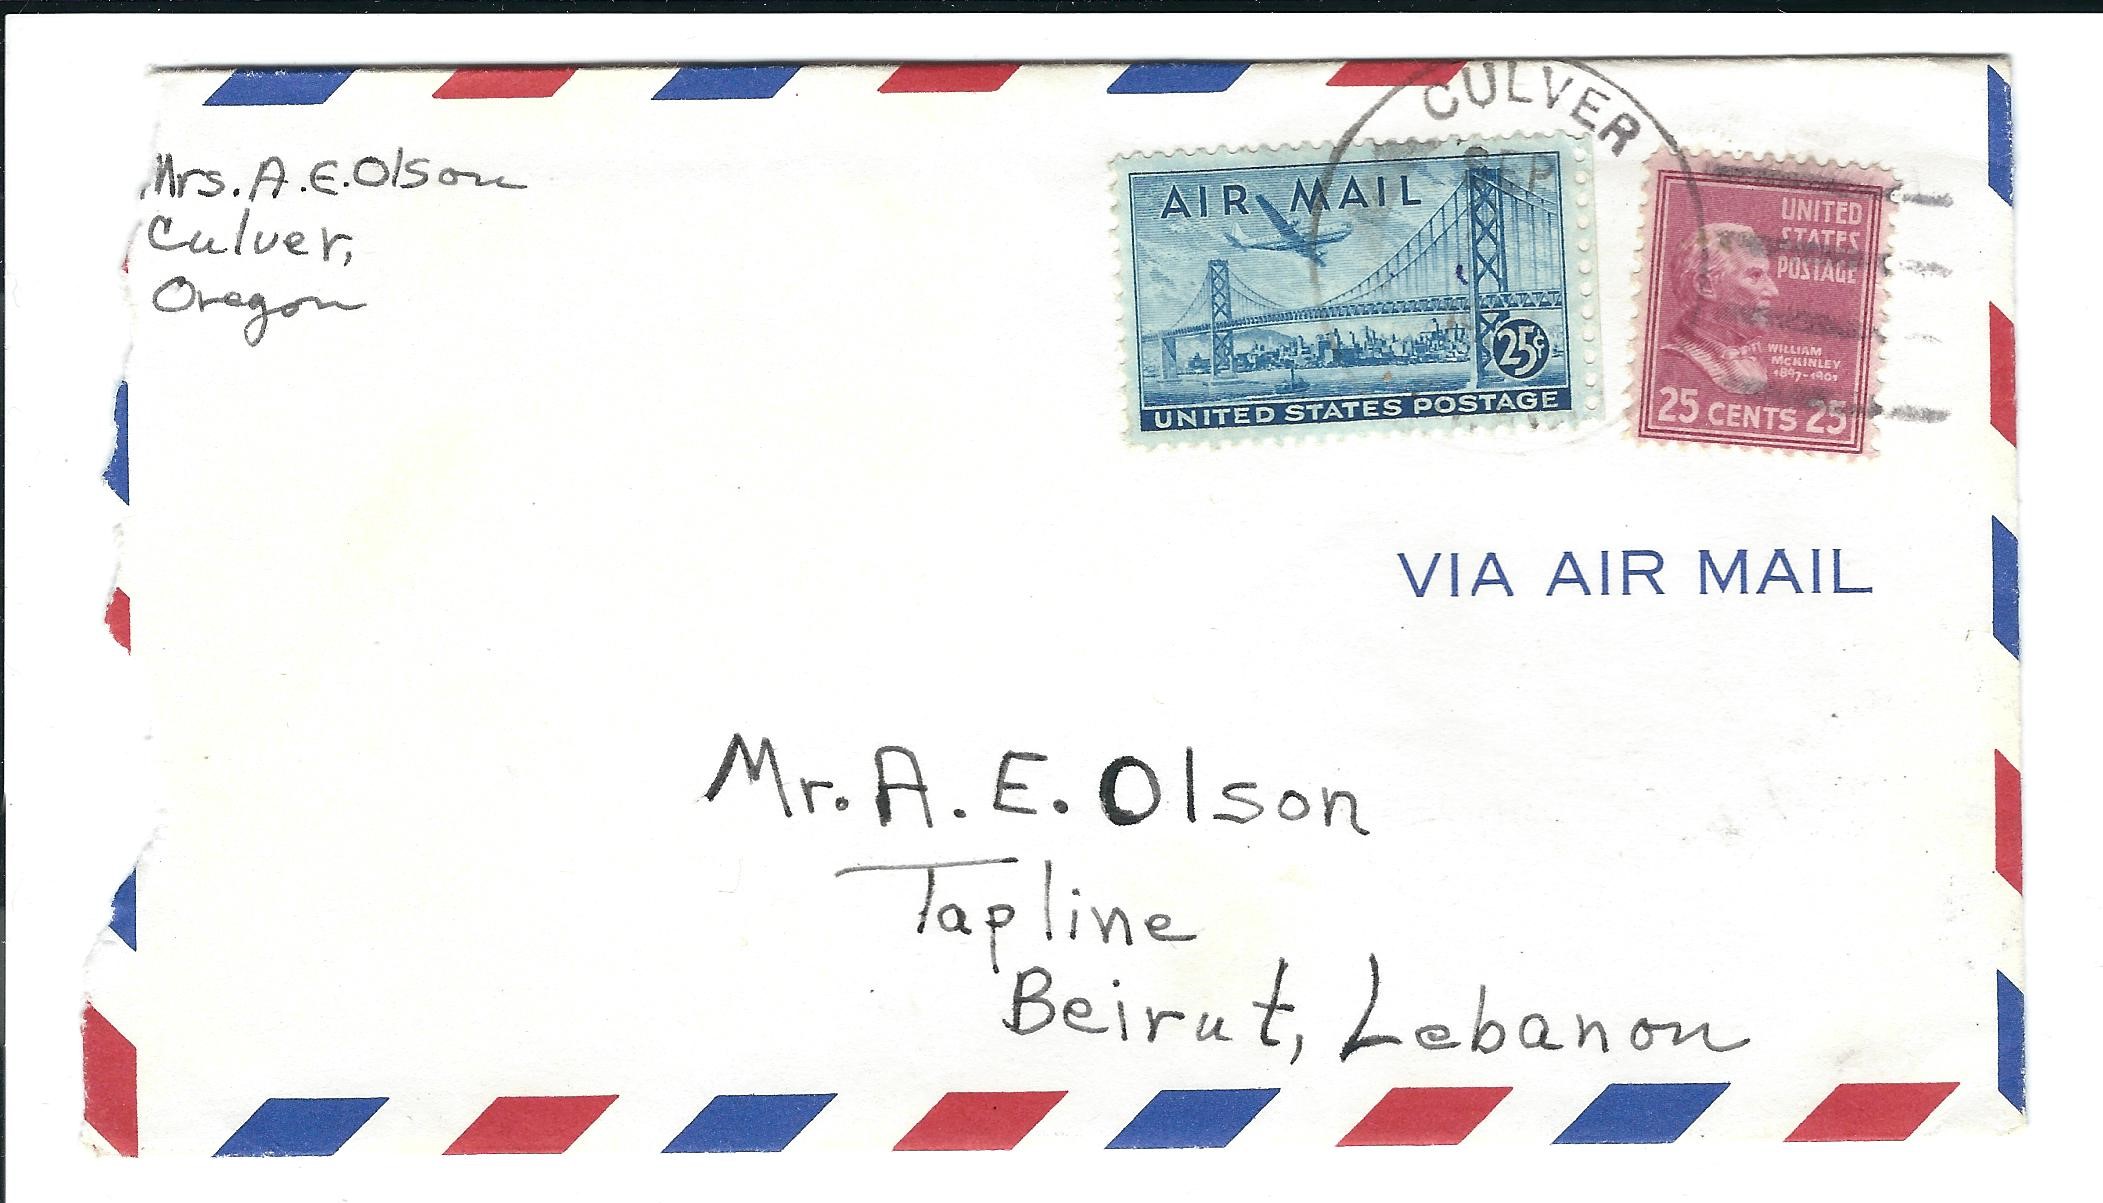 Mrs. A.E. Olson
Culver,
Oregon
CULVER
SEP
AIR MAIL
25¢
UNITED STATES POSTAGE
UNITED
STATES
POSTAGE
WILLIAM
McKINLEY
1897-1901
25 CENTS 25
VIA AIR MAIL
Mr. A. E. Olson
Tapline
Beirut, Lebanon